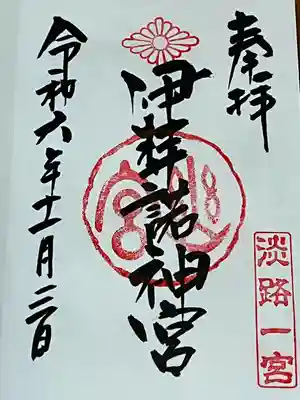 奉拝
伊弉諾神宮
淡路一宮
令和六年十一月三日